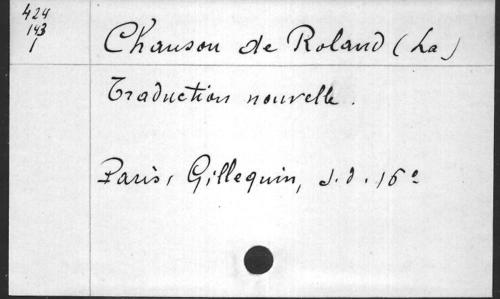 424
143
1
Chanson de Roland (La)
Traduction nouvelle.
Paris, Gillequin, s.d. 16°